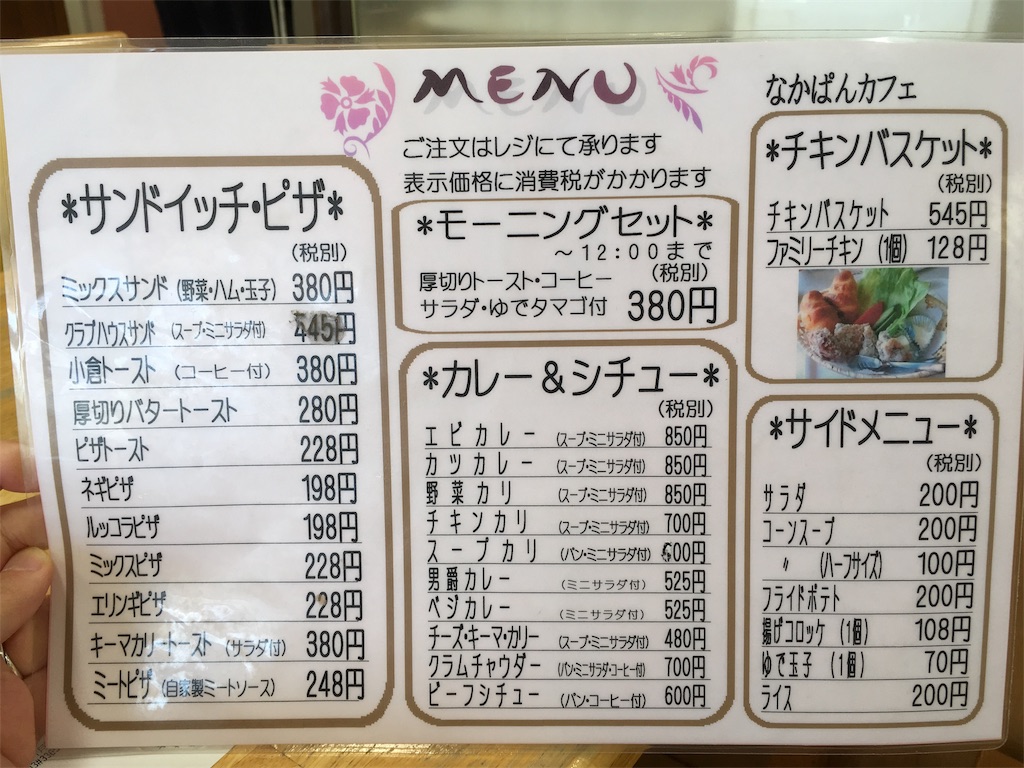 MENU
ご注文はレジにて承ります
表示価格に消費税がかかります
*サンドイッチ・ピザ*
(税別)
ミックスサンド (野菜・ハム・玉子) 380円
クラブハウスサンド (スープ・ミニサラダ付) 445円
小倉トースト (コーヒー付) 380円
厚切りバタートースト 280円
ピザトースト 228円
ネギピザ 198円
ルッコラピザ 198円
ミックスピザ 228円
エリンギピザ 228円
キーマカリートースト (サラダ付) 380円
ミートピザ (自家製ミートソース) 248円
*モーニングセット*
~12:00まで
厚切りトースト・コーヒー (税別)
サラダ・ゆでタマゴ付 380円
*カレー&シチュー*
(税別)
エビカレー (スープ・ミニサラダ付) 850円
カツカレー (スープ・ミニサラダ付) 850円
野菜カリー (スープ・ミニサラダ付) 850円
チキンカリー (スープ・ミニサラダ付) 700円
スープカリー (パン・ミニサラダ付) 600円
男爵カレー (ミニサラダ付) 525円
ベジカレー (ミニサラダ付) 525円
チーズ・キーマ・カリー (スープ・ミニサラダ付) 480円
クラムチャウダー (パン・ミニサラダ・コーヒー付) 700円
ビーフシチュー (パン・コーヒー付) 600円
なかぱんカフェ
*チキンバスケット*
(税別)
チキンバスケット 545円
ファミリーチキン (1個) 128円
*サイドメニュー*
(税別)
サラダ 200円
コーンスープ 200円
〃 (ハーフサイズ) 100円
フライドポテト 200円
揚げコロッケ (1個) 108円
ゆで玉子 (1個) 70円
ライス 200円